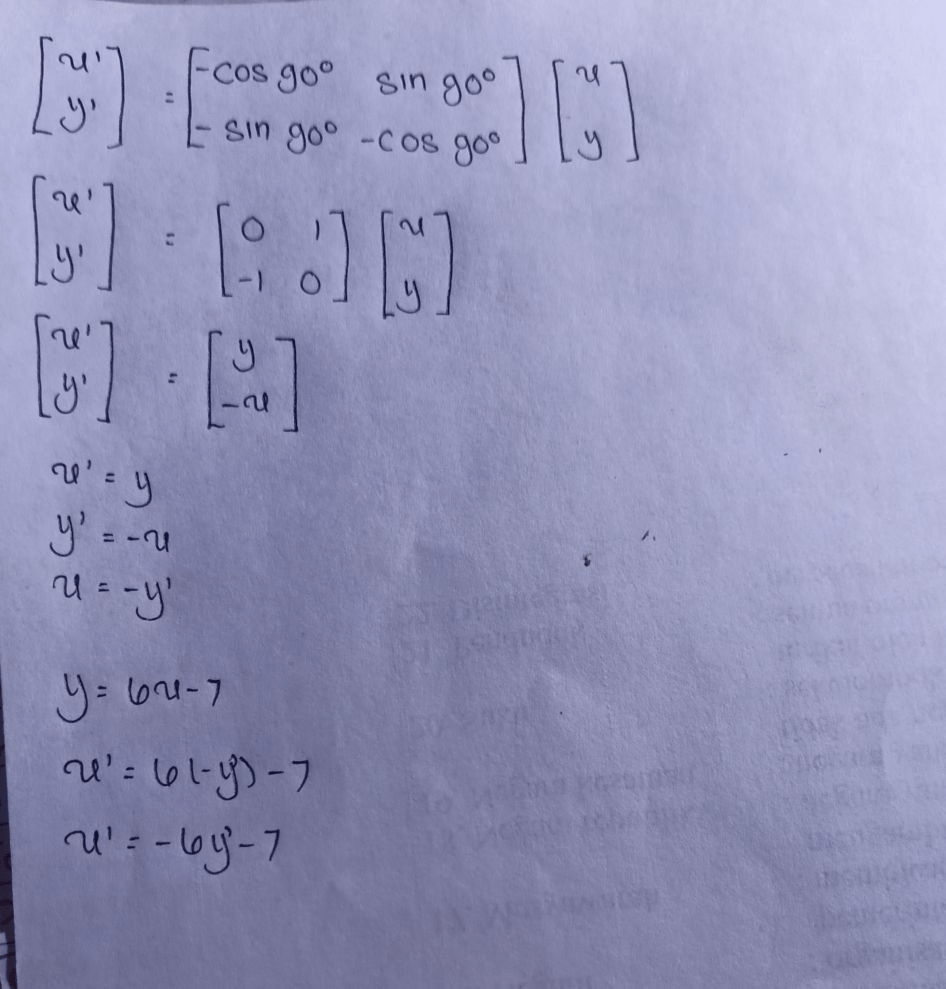 [x' y'] = [-cos 90° sin 90° - sin 90° -cos 90°] [x y]
[x' y'] = [0 1 -1 0] [x y]
[x' y'] = [y -x]
x' = y
y' = -x
x = -y'
y = 6x - 7
x' = 6(-y') - 7
x' = -6y' - 7